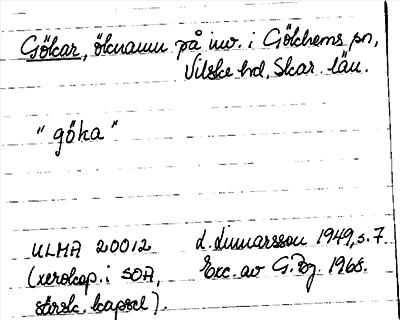 Gökar, öknamn på inv. i Gökhems pn,
Vilske hd, Skar. län.
"göka"
ULMA 20012 L. Linnarsson 1949, s. 7.
(xerokop. i SOA, Exc. av G. Bg. 1968.
särsk. kapsel).